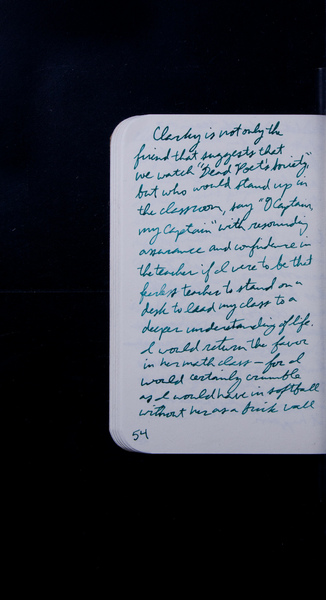 Clarky is not only the
friend that suggests that
we watch "Dead Poet's Society"
but who would stand up in
the classroom, say "O Captain,
my Captain" with resounding
assurance and confidence in
the teacher if I were to be that
fearless teacher to stand on a
desk to lead my class to a
deeper understanding of life.
I would return the favor
in her math class – for I
would certainly crumble
as I would have in softball
without her as a brick wall
54